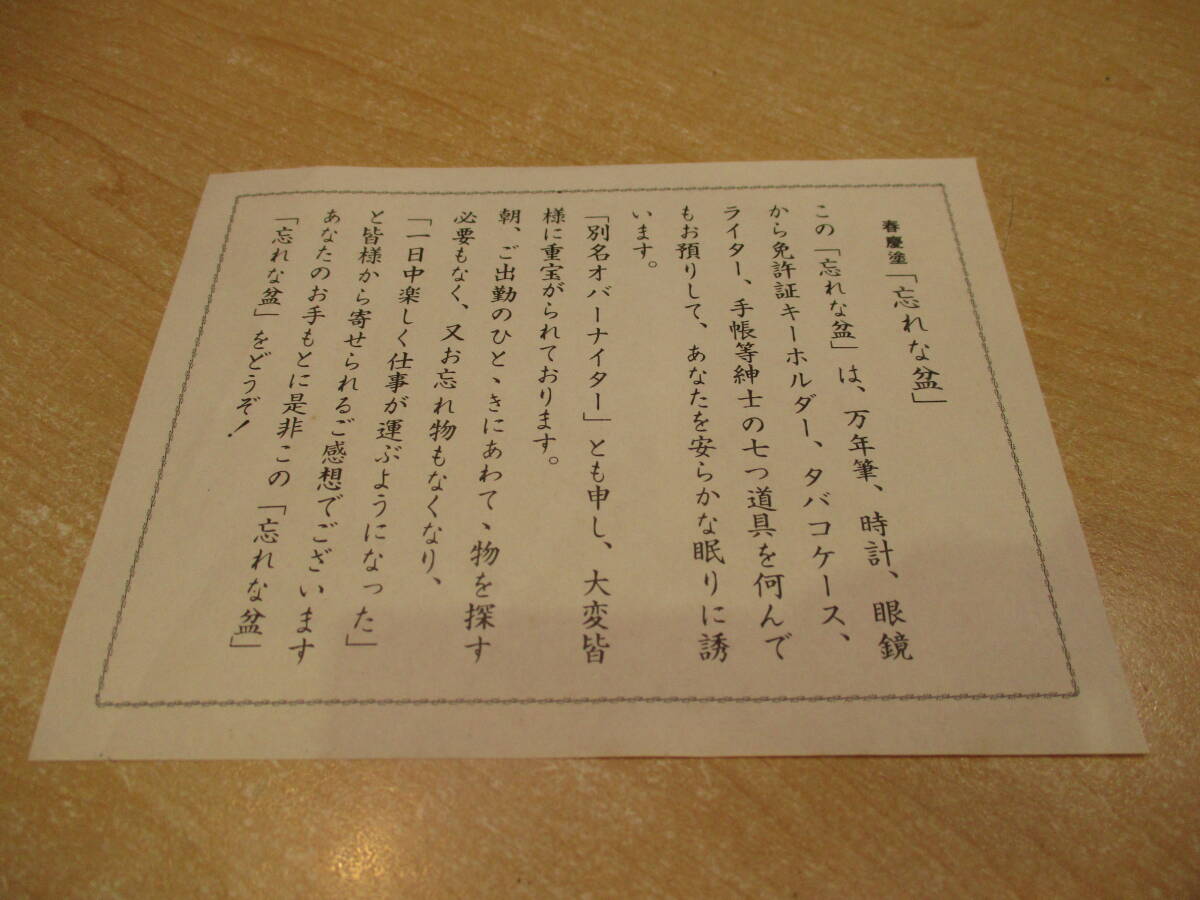 春慶塗「忘れな盆」
この「忘れな盆」は、万年筆、時計、眼鏡
から免許証キーホルダー、タバコケース、
ライター、手帳等紳士の七つ道具を何んで
もお預りして、あなたを安らかな眠りに誘
います。
「別名オバーナイター」とも申し、大変皆
様に重宝がられております。
朝、ご出勤のひとゝきにあわてゝ物を探す
必要もなく、又お忘れ物もなくなり、
「一日中楽しく仕事が運ぶようになった」
と皆様から寄せられるご感想でございます
あなたのお手もとに是非この「忘れな盆」
「忘れな盆」をどうぞ！